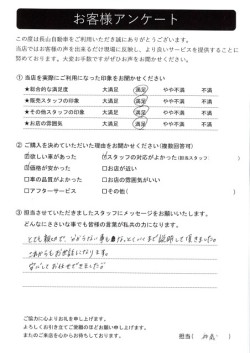 お客様アンケート
この度は長山自動車をご利用いただき誠にありがとうございます。
当店ではお客様の声を出来るだけ現場に反映し、より良いサービスを提供することに
努めております。大変お手数ですがぜひお声をお聞かせください。
① 当店を実際にご利用になった印象をお聞かせください
★総合的な満足度 大満足 満足 やや不満 不満
★販売スタッフの印象 大満足 満足 やや不満 不満
★その他スタッフの印象 大満足 満足 やや不満 不満
★お店の雰囲気 大満足 満足 やや不満 不満
② ご購入を決めていただいた理由をお聞かせください(複数回答可)
☑欲しい車があった ☑スタッフの対応がよかった(担当スタッフ: )
☑価格が安かった □お店が近い
□車の品質がよかった □お店の雰囲気がいい
□アフターサービス □その他( )
③ 担当させていただきましたスタッフにメッセージをお願いいたします。
どんなにささいな事でも皆様の言葉が私共の力になります。
とても親切で、分からない事もなっとくいくまで説明して頂きました。
これからもお世話になります。
安心しておまかせできましたよ
ご協力に心よりお礼を申し上げます。
よろしくお引き立てご愛顧のほどお願い申し上げます。
またのご来店を心からお待ちしております。 担当( )